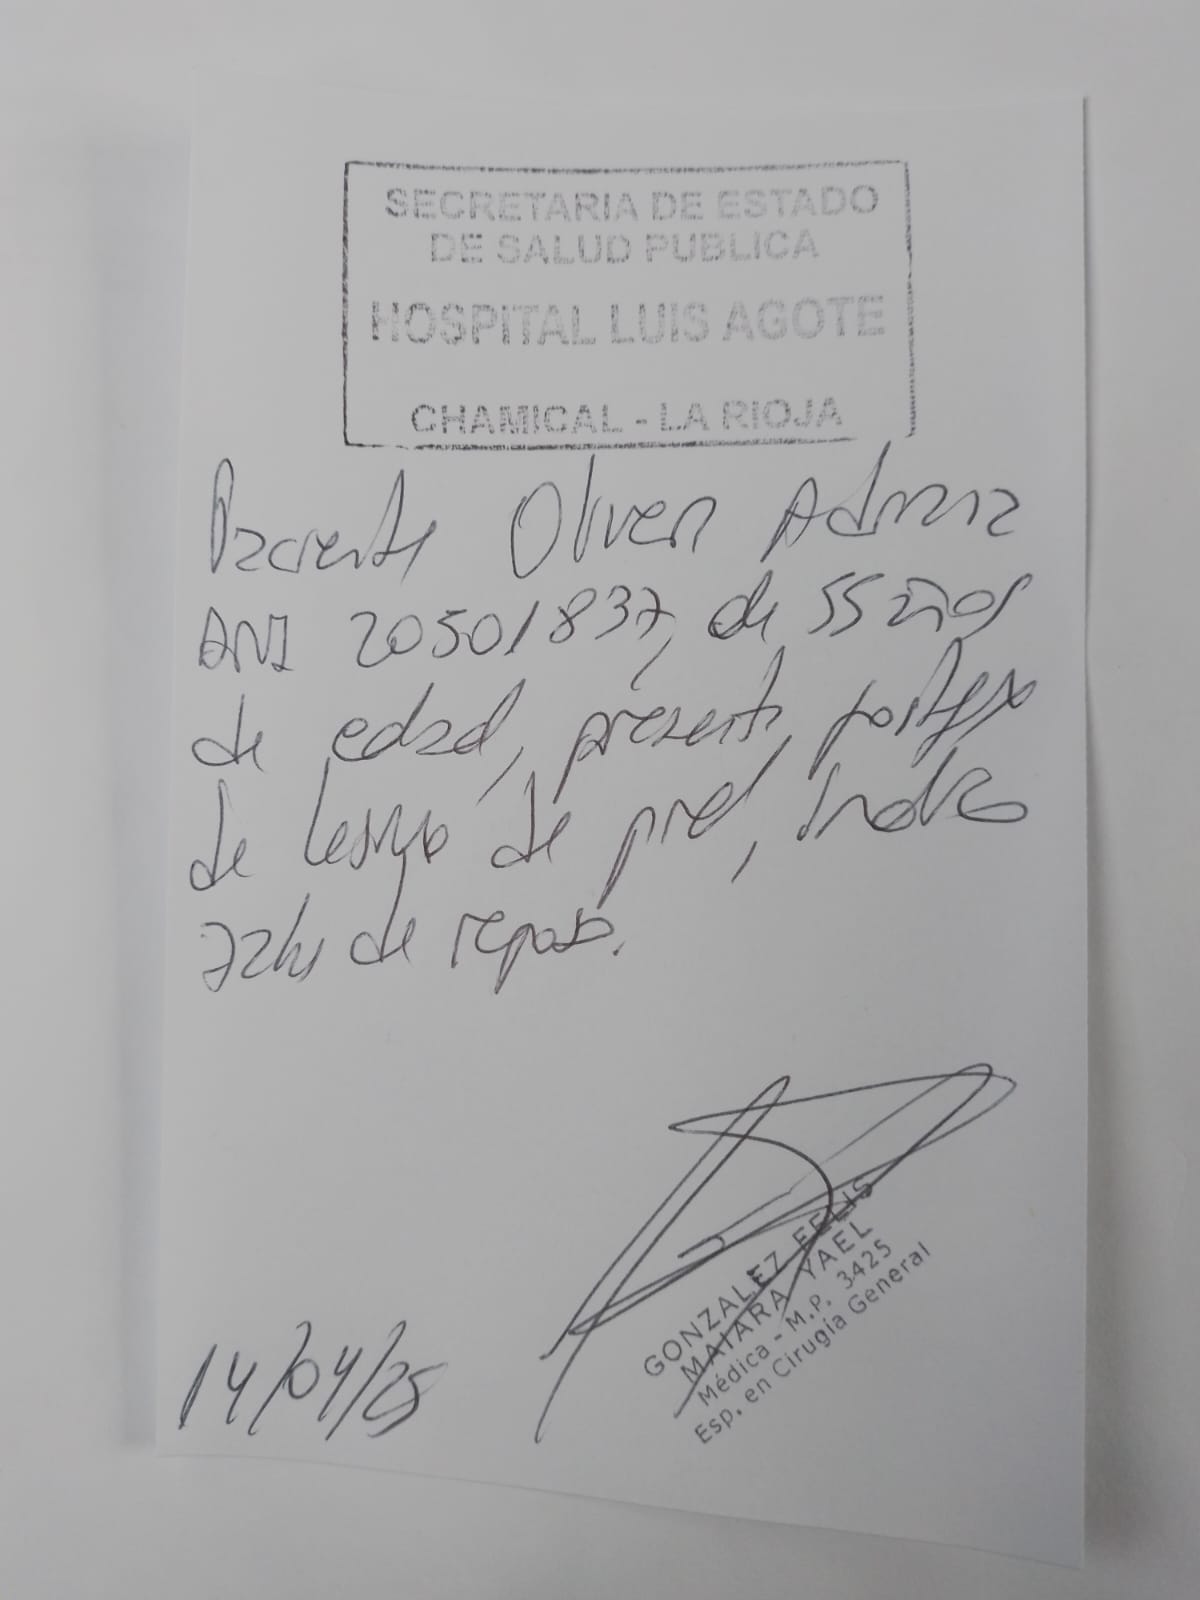 SECRETARIA DE ESTADO
DE SALUD PUBLICA
HOSPITAL LUIS AGOTE
CHAMICAL - LA RIOJA
Paciente Olivera Adriana
DNI 20501837, de 55 años
de edad, presenta
de lesión de piel, Indico
72hs de reposo.
14/04/25
GONZALEZ FELIS
MAIARA YAEL
Médica - M.P. 3425
Esp. en Cirugía General